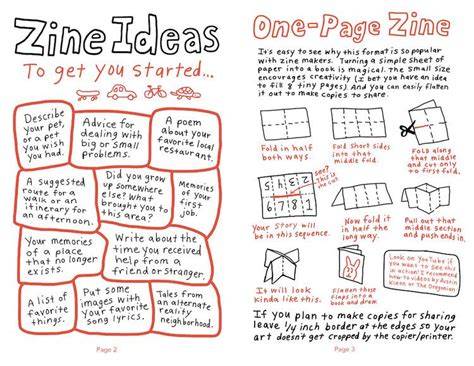 Zine Ideas
To get you started...
Describe
your pet,
or a pet
you wish
you had.
Advice for
dealing with
big or small
problems.
A poem
about your
favorite local
restaurant.
A suggested
route for a
walk or an
itinerary for
an afternoon.
Did you grow
up somewhere
else? What
brought you to
this area?
Memories
of your
first
job.
Your memories
of a place
that no longer
exists.
Write about the
time you received
help from a
friend or stranger.
A list of
favorite
things.
Put some
images with
your favorite
song lyrics.
Tales from an
alternate
reality
neighborhood.
Page 2
One-Page Zine
It's easy to see why this format is so popular
with zine makers. Turning a simple sheet of
paper into a book is magical. The small size
encourages creativity (I bet you have an idea
to fill 8 tiny pages). And you can easily flatten
it out to make copies to share.
Fold in half
both ways.
Fold short sides
into that
middle fold.
Fold along
that middle
and cut only
to first fold.
See?
This is
the cut
Your story will
be in this sequence.
Now fold it
in half the
long way.
Pull out that
middle section
and push ends in.
It will look
kinda like this.
Flatten those
flaps into a
book and draw
Look on YouTube if
you want to see this
in action! I recommend
how-to videos by Austin
Kleon or The Oregonian
If you plan to make copies for sharing
leave 1/4 inch border at the edges so your
art doesn't get cropped by the copier/printer.
Page 3